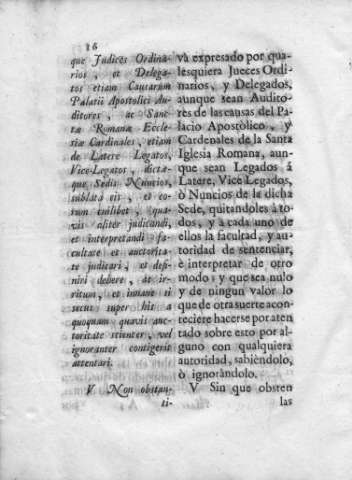 16
que Judices Ordina-
rios, et Delega-
tos etiam Causarum
Palatii Apostolici Au-
ditores, ac Sanc-
tæ Romanæ Eccle-
siæ Cardinales, etiam
de Latere Legatos,
Vice-Legatos, dictæ-
que Sedis Nuncios,
sublata eis, et eo-
rum cuilibet, qua-
vis aliter judicandi,
et interpretandi fa-
cultate et auctorita-
te judicari, et defi-
niri debere, ac ir-
ritum, et inane si
secus super his a
quoquam quavis auc-
toritate scienter, vel
ignoranter contigerit
attentari.
V. Non obstan-
ti-
và expresado por qua-
lesquiera Jueces Ordi-
narios, y Delegados,
aunque sean Audito-
res de las causas del Pa-
lacio Apostòlico, y
Cardenales de la Santa
Iglesia Romana, aun-
que sean Legados á
Latere, Vice Legados,
ò Nuncios de la dicha
Sede, quitandoles à to-
dos, y à cada uno de
ellos la facultad, y au-
toridad de sentenciar,
è interpretar de otro
modo; y que sea nulo
y de ningun valor lo
que de otra suerte acon-
reciere hacerse por aten
tado sobre esto por al-
guno con qualquiera
autoridad, sabièndolo,
ò ignoràndolo.
V Sin que obsten
las